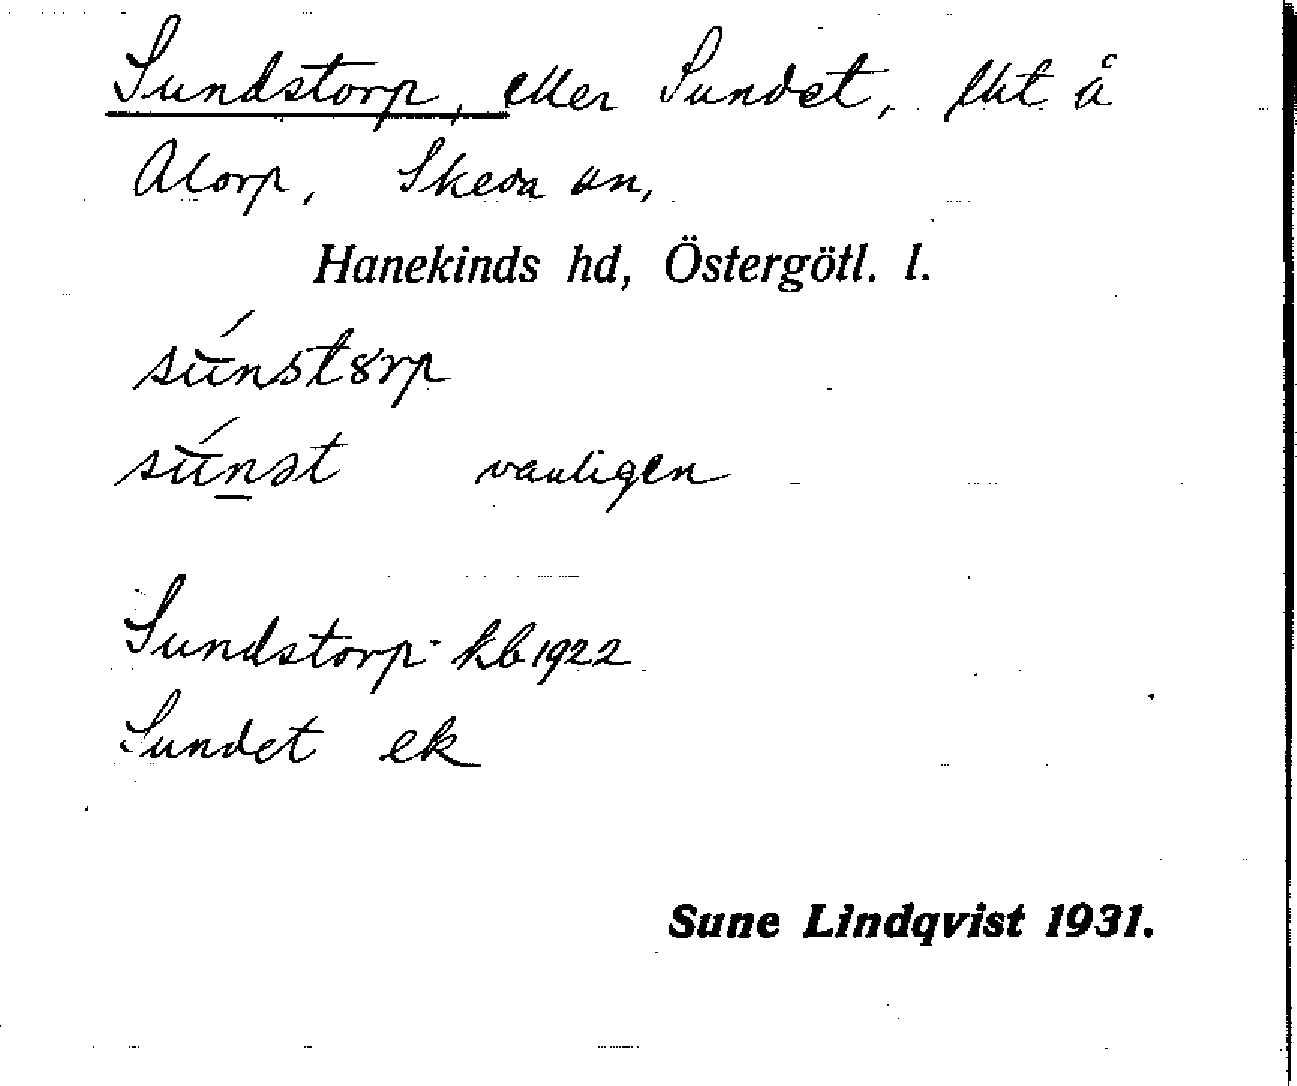 Sundstorp, eller Sundet, lht å
Atorp, Skeda sn,
Hanekinds hd, Östergötl. l.
súnstȣrp
súnət vanligen
Sundstorp kb 1922
Sundet ek
Sune Lindqvist 1931.